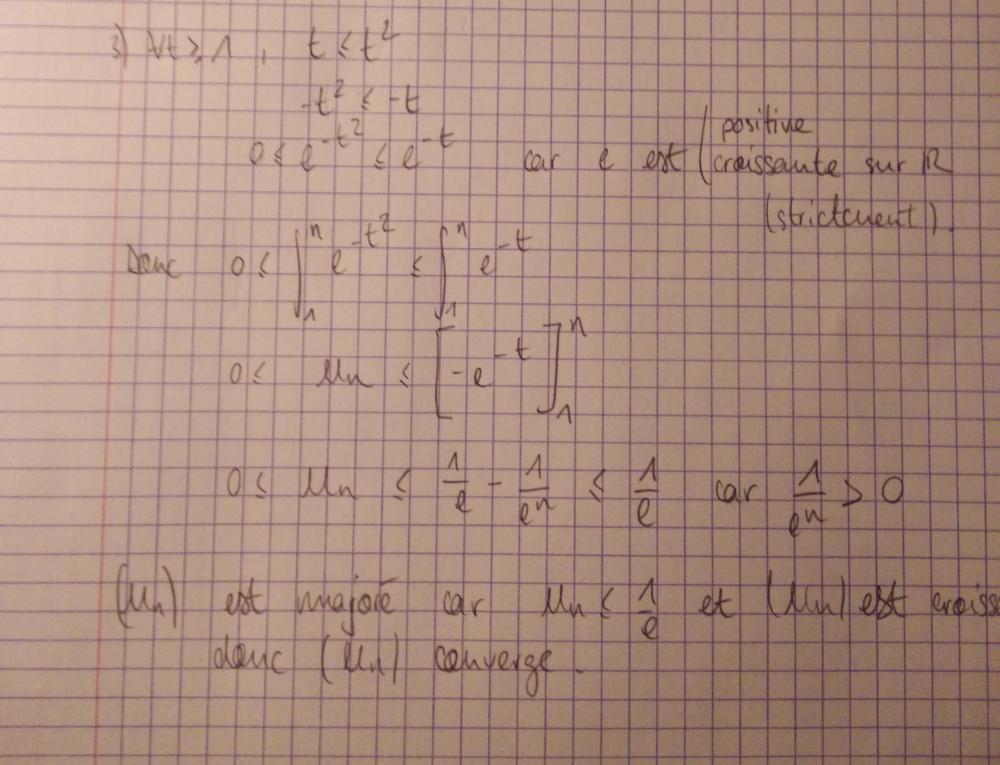 3) ∀t ≥ 1, t ≤ t²
-t² ≤ -t
0 ≤ e^{-t²} ≤ e^{-t} car e est (positive
croissante sur ℝ
(strictement).
Donc 0 ≤ ∫₁ⁿ e^{-t²} ≤ ∫₁ⁿ e^{-t}
0 ≤ Un ≤ [-e^{-t}]₁ⁿ
0 ≤ Un ≤ 1/e - 1/eⁿ ≤ 1/e car 1/eⁿ > 0
(Un) est majoré car Un ≤ 1/e et (Un) est croiss
donc (Un) converge.